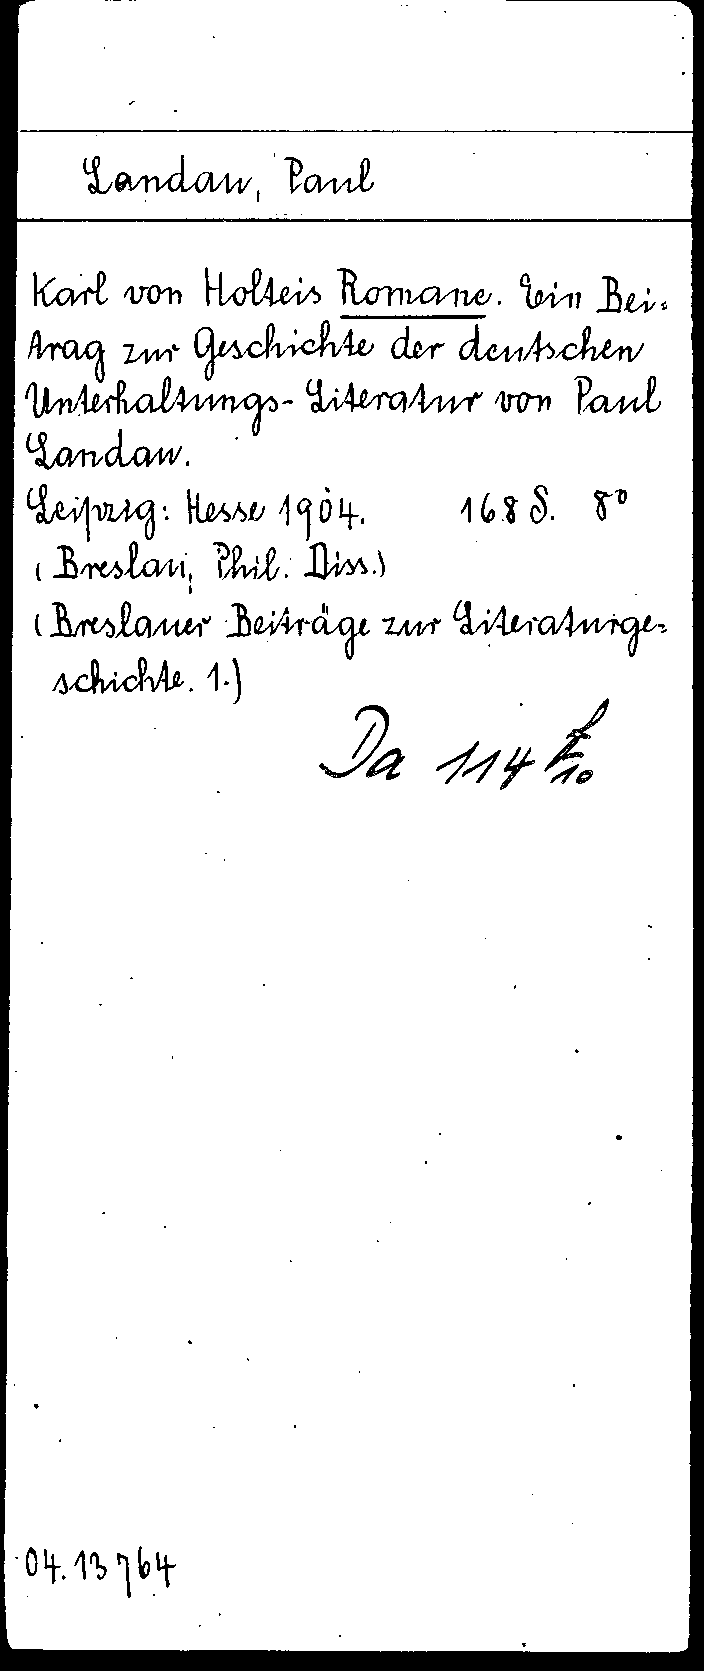 Landau, Paul
Karl von Holteis Romane. Ein Bei=
trag zur Geschichte der deutschen
Unterhaltungs-Literatur von Paul
Landau.
Leipzig: Hesse 1904. 168 S. 8°
(Breslau, Phil. Diss.)
(Breslauer Beiträge zur Literaturge=
schichte. 1.)
Da 114
04.13764